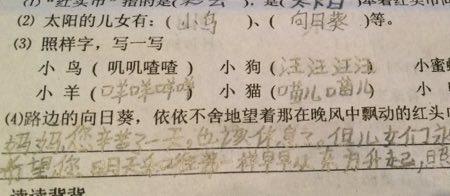 (1)"红头巾"指的是(彩云),是(
(2) 太阳的儿女有:(小鸟)、(向日葵)等。
(3) 照样字,写一写
小鸟(叽叽喳喳) 小狗(汪汪汪汪) 小蜜
小羊(咩咩咩咩) 小猫(喵儿喵儿) 小
(4)路边的向日葵,依依不舍地望着那在晚风中飘动的红头
妈妈,您辛苦了一天,也该休息了。但儿女们
希望您明天和 一样早早从东方升起,
读读背背